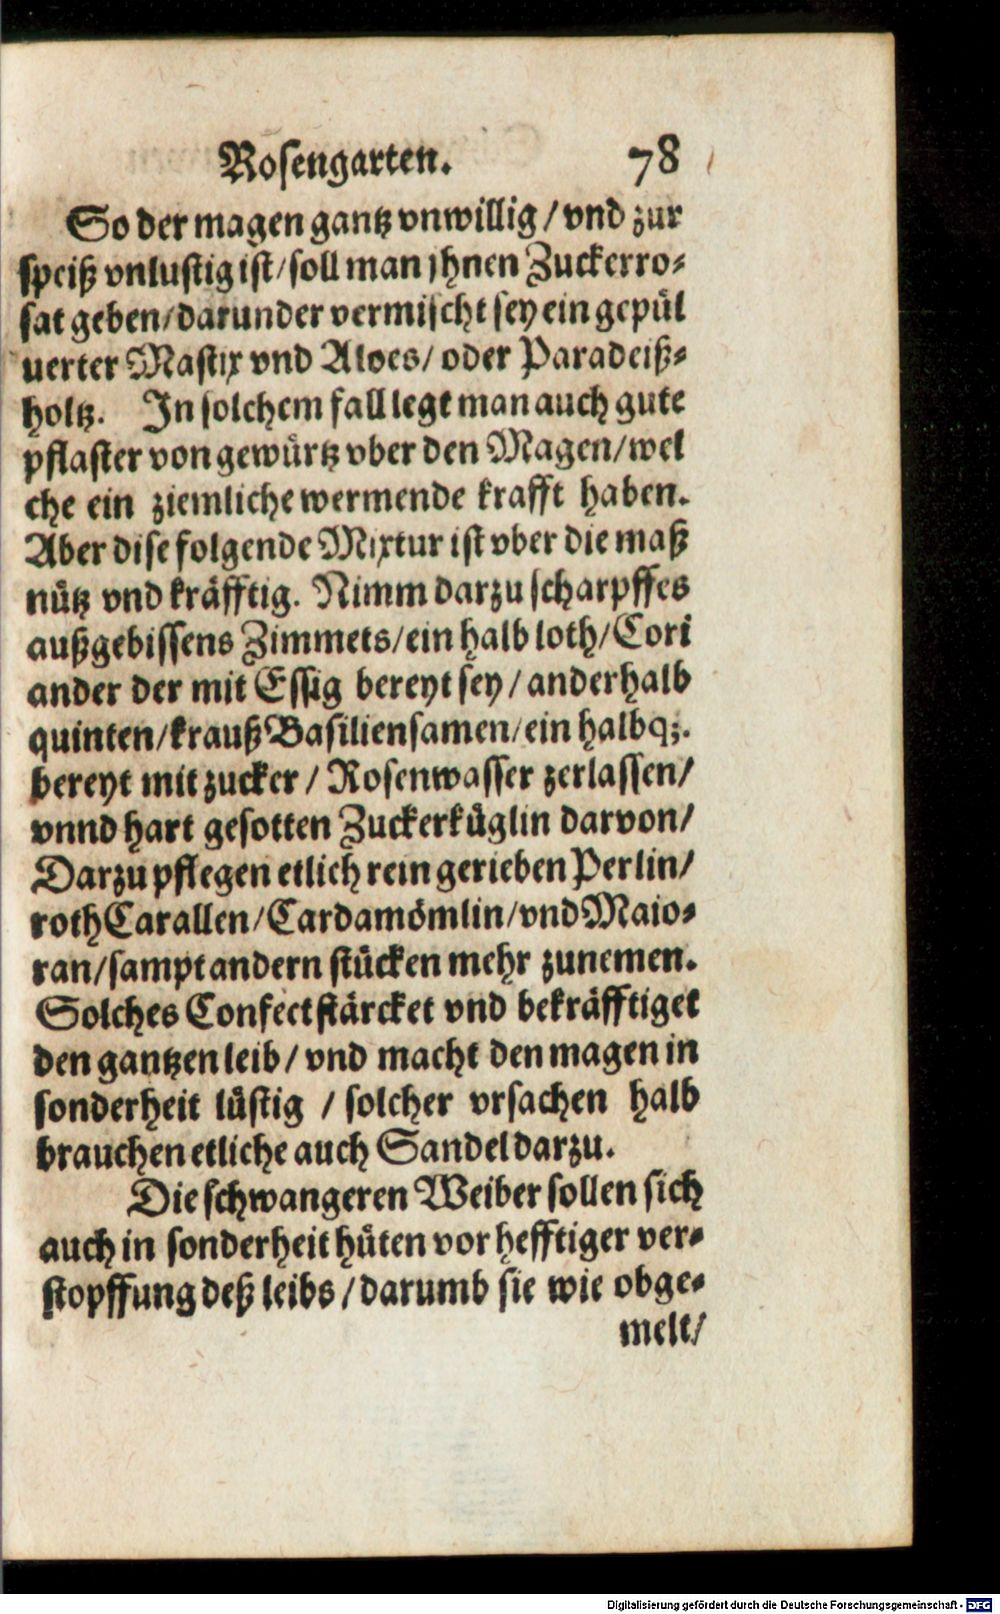 Rosengarten. 78
So der magen gantz vnwillig / vnd zur
speiß vnlustig ist / soll man jhnen Zuckerro-
sat geben / darunder vermischt sey ein gepül
uerter Mastix vnd Aloes / oder Paradeiß-
holtz. In solchem fall legt man auch gute
pflaster von gewürtz vber den Magen / wel
che ein ziemliche wermende krafft haben.
Aber dise folgende Mixtur ist vber die maß
nütz vnd kräfftig. Nimm darzu scharpffes
außgebissens Zimmets / ein halb loth / Cori
ander der mit Essig bereyt sey / anderhalb
quinten / krauß Basiliensamen / ein halb q;.
bereyt mit zucker / Rosenwasser zerlassen /
vnnd hart gesotten Zuckerküglin darvon /
Darzu pflegen etlich rein gerieben Perlin /
roth Carallen / Cardamömlin / vnd Maio-
ran / sampt andern stücken mehr zunemen.
Solches Confect stärcket vnd bekräfftiget
den gantzen leib / vnd macht den magen in
sonderheit lüstig / solcher vrsachen halb
brauchen etliche auch Sandel darzu.
Die schwangeren Weiber sollen sich
auch in sonderheit hüten vor hefftiger ver-
stopffung deß leibs / darumb sie wie obge-
melt /
Digitalisierung gefördert durch die Deutsche Forschungsgemeinschaft - DFG